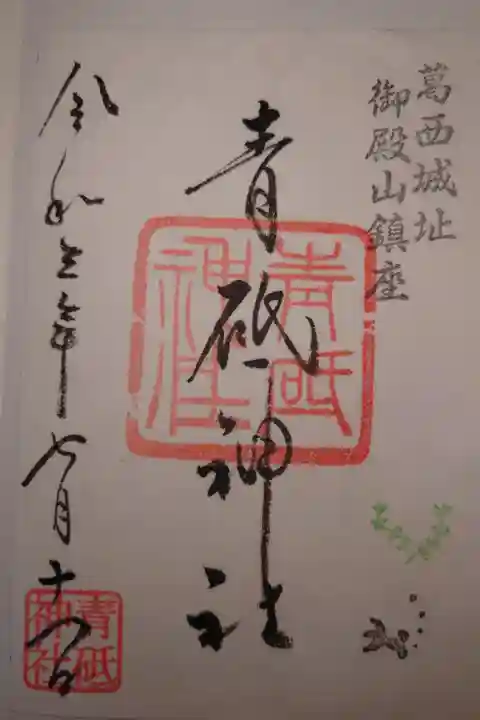 葛西城址
御殿山鎮座
青砥神社
青砥
神社
令和三年七月
青砥
神社